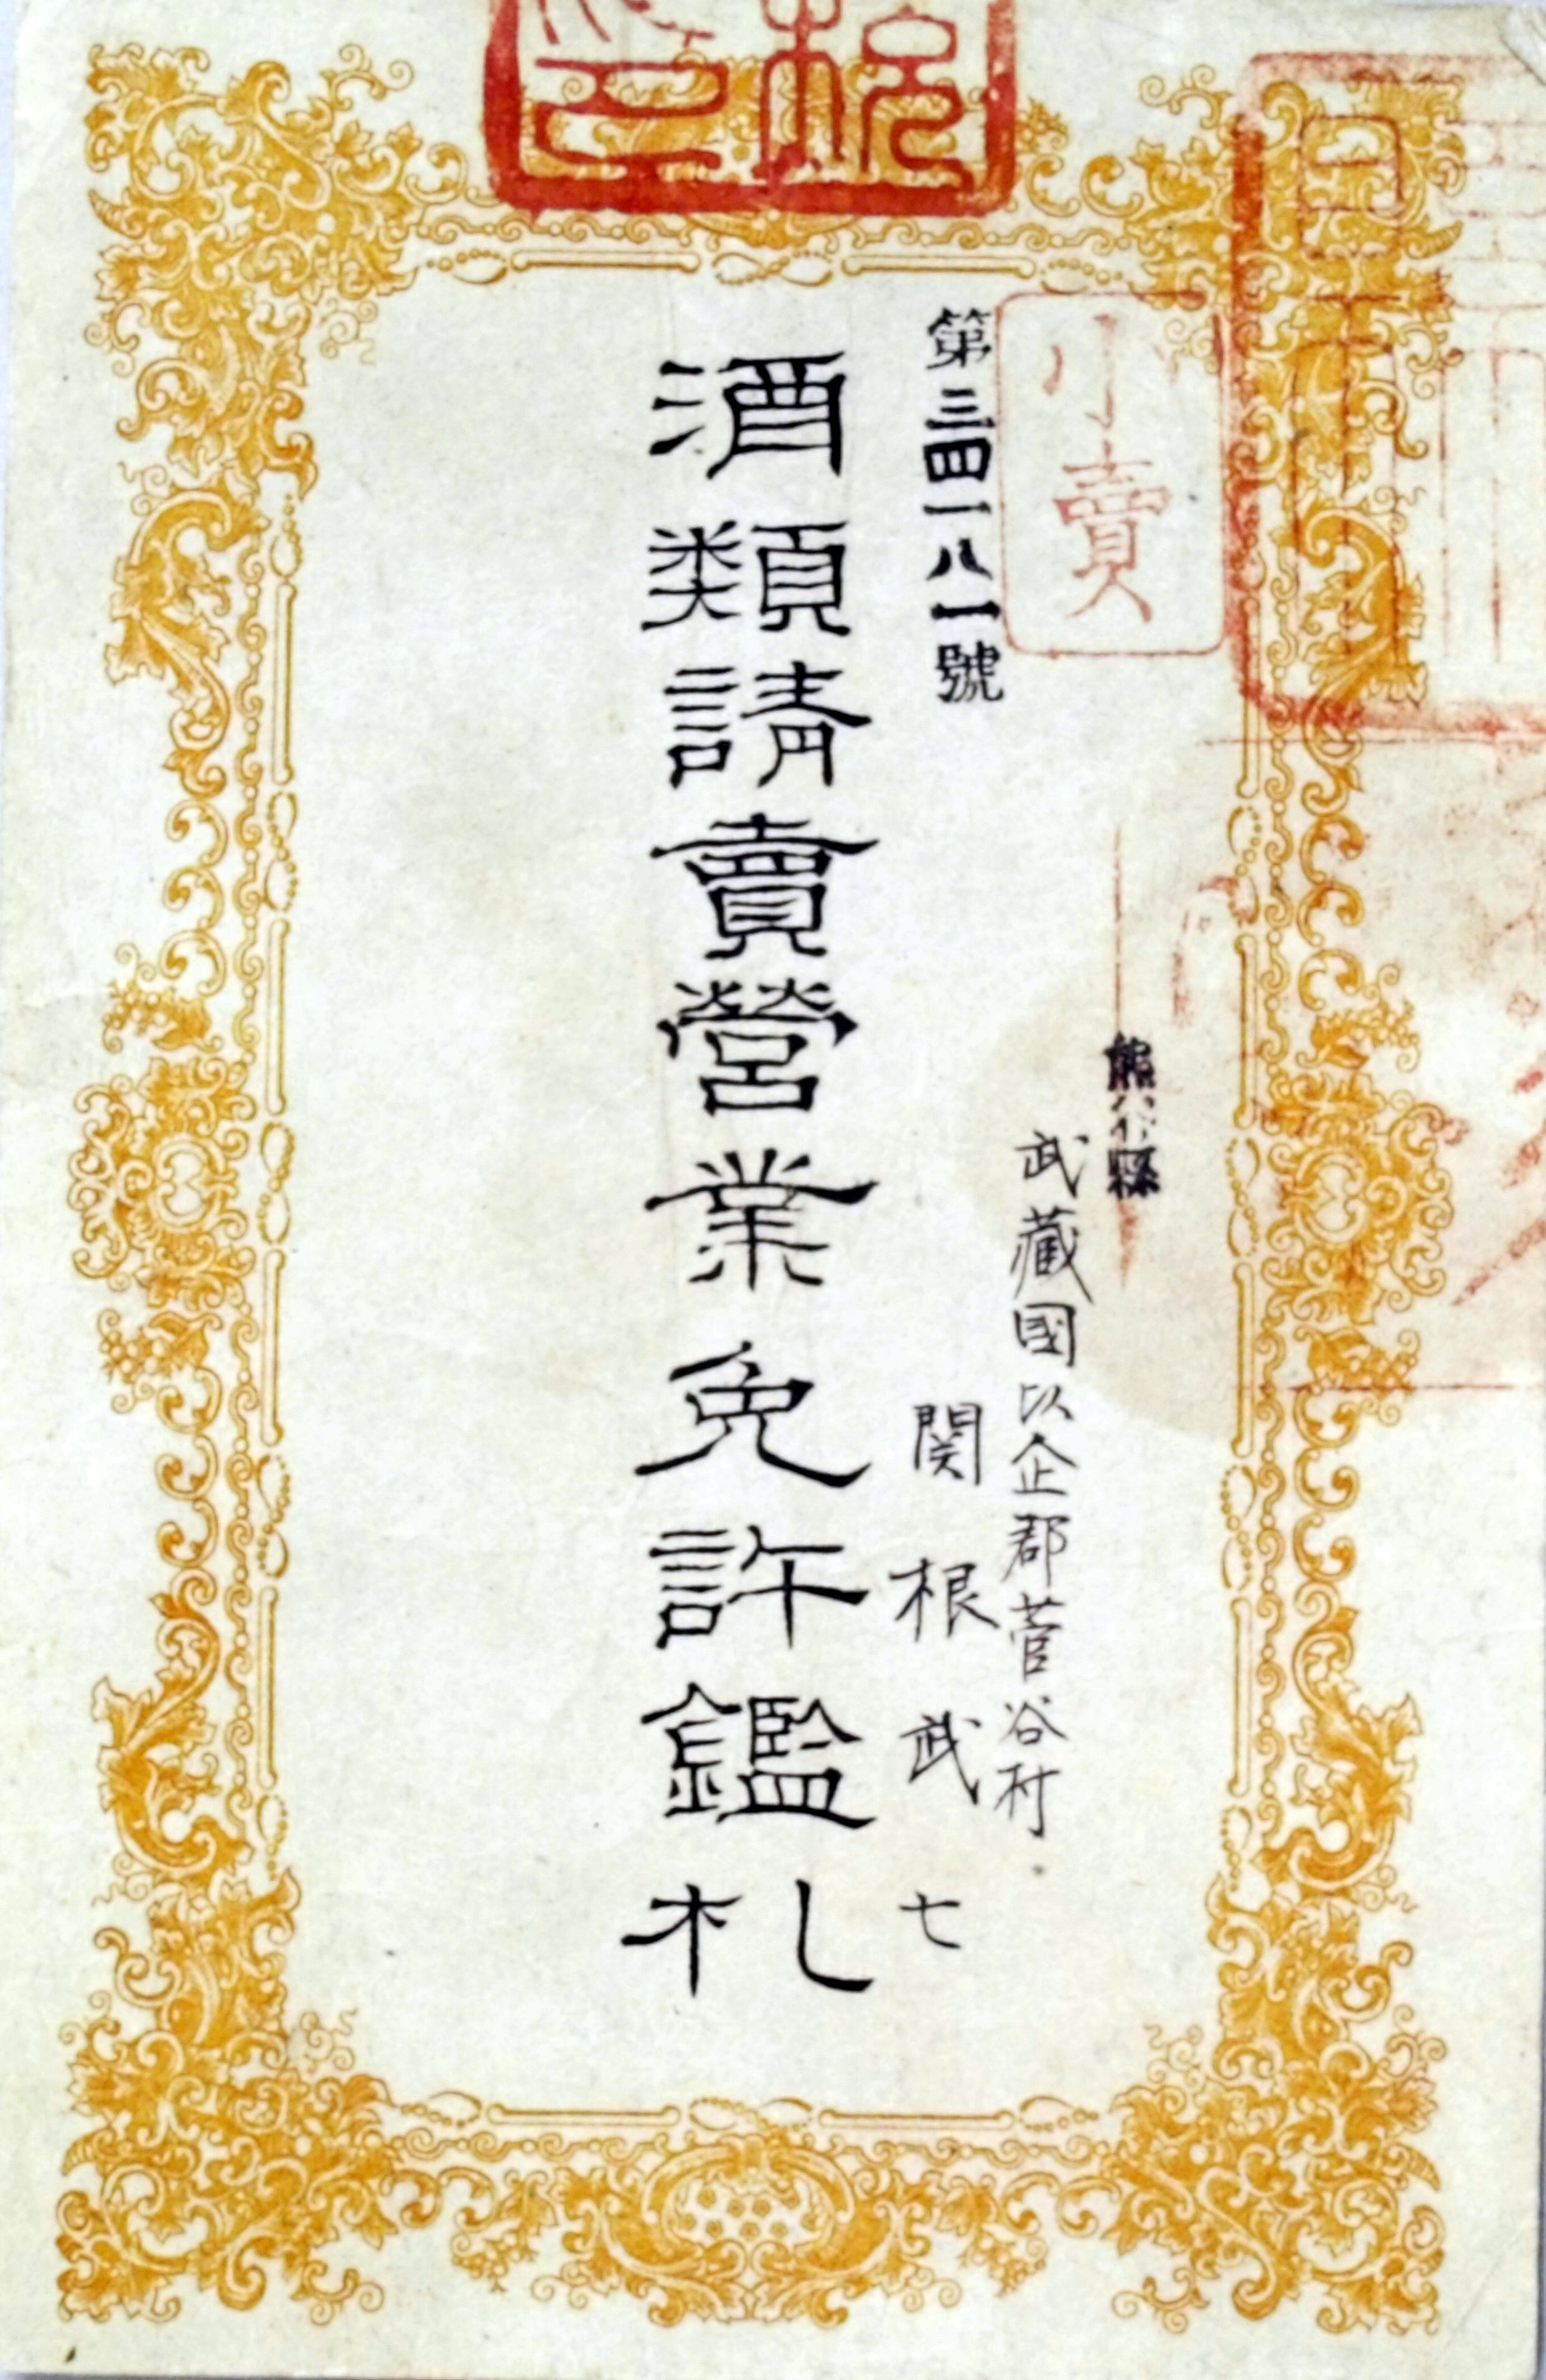 小賣
熊谷縣
武藏國比企郡菅谷村
第三四一八一號
関根武七
酒類請賣營業免許鑑札